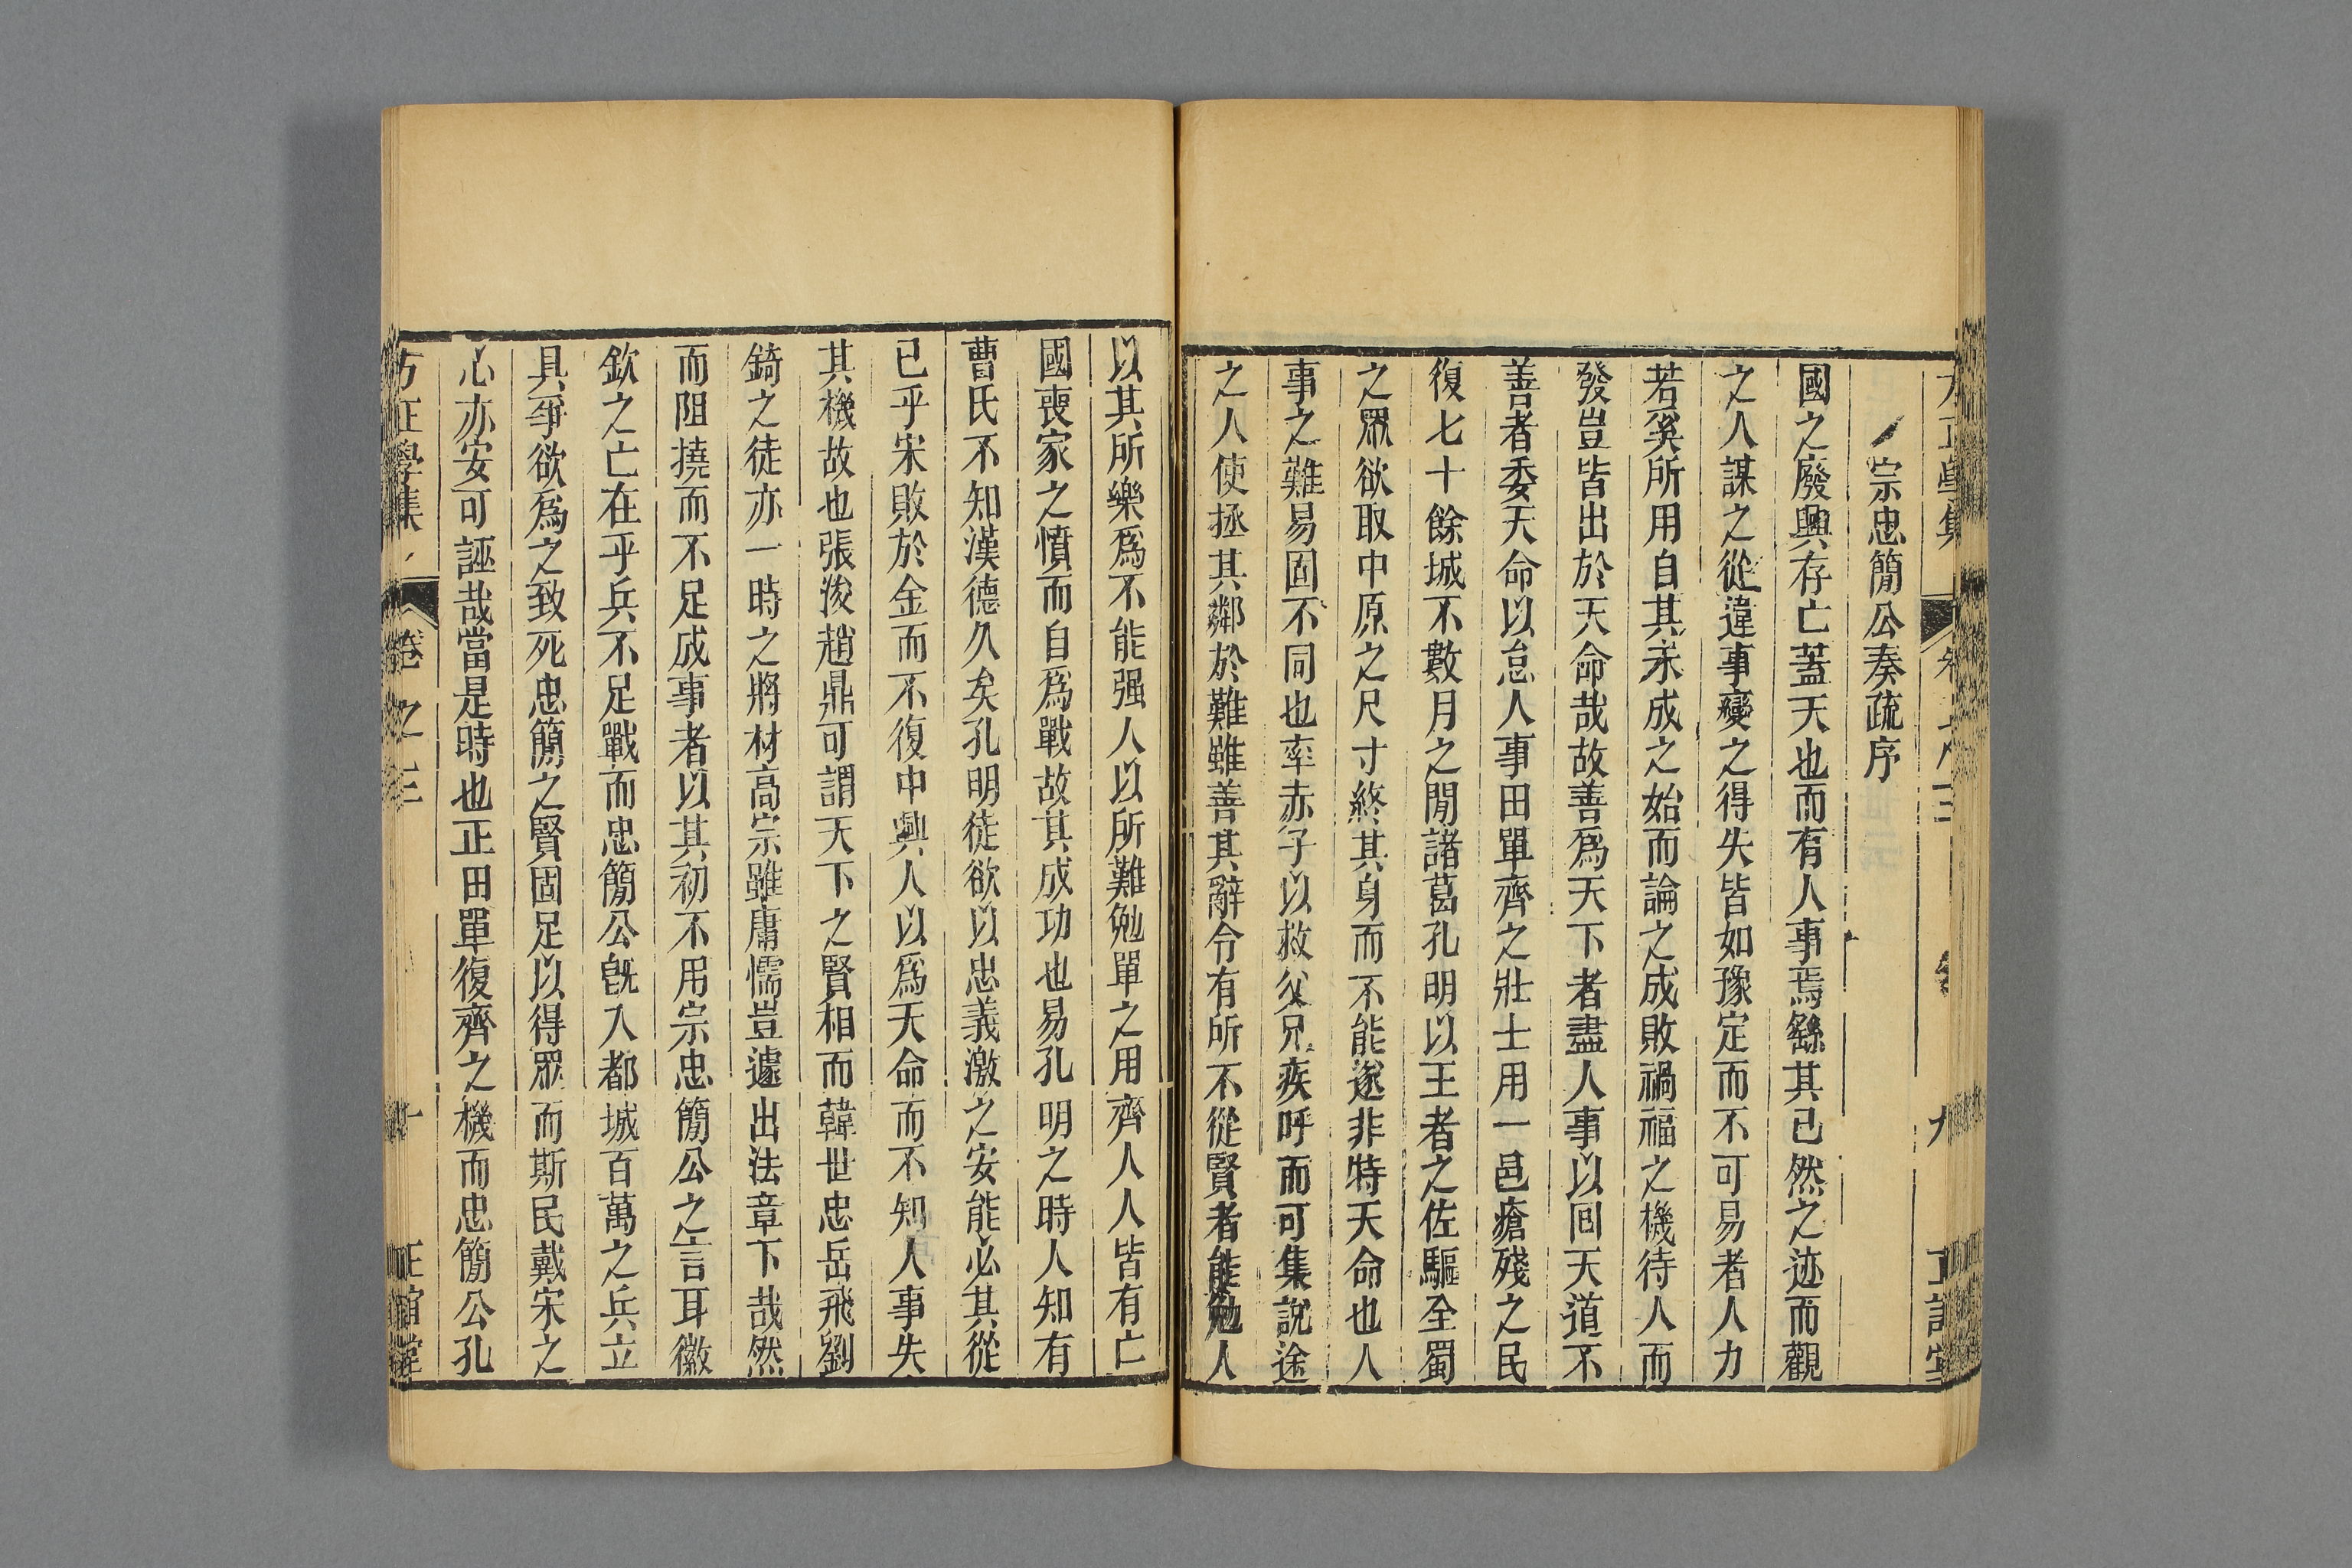 宗忠簡公奏疏序
國之廢興存亡蓋天也而有人事焉繇其已然之迹而觀
之人謀之從違事變之得失皆如豫定而不可易者人力
若奚所用自其未成之始而論之成敗禍福之機待人而
發豈皆出於天命哉故善爲天下者盡人事以回天道不
善者委天命以怠人事田單齊之壯士用一邑瘡殘之民
復七十餘城不數月之閒諸葛孔明以王者之佐驅全蜀
之眾欲取中原之尺寸終其身而不能遂非特天命也人
事之難易固不同也率赤子以救父兄疾呼而可集說途
之人使拯其鄰於難雖善其辭令有所不從賢者能勉人
以其所樂爲不能强人以所難勉單之用齊人人皆有亡
國喪家之憤而自爲戰故其成功也易孔明之時人知有
曹氏不知漢德久矣孔明徒欲以忠義激之安能必其從
已乎宋敗於金而不復中興人以爲天命而不知人事失
其機故也張浚趙鼎可謂天下之賢相而韓世忠岳飛劉
錡之徒亦一時之將材高宗雖庸懦豈遽出法章下哉然
而阻撓而不足成事者以其初不用宗忠簡公之言耳徽
欽之亡在乎兵不足戰而忠簡公旣入都城百萬之兵立
具爭欲爲之致死忠簡之賢固足以得眾而斯民戴宋之
心亦安可誣哉當是時也正田單復齊之機而忠簡公孔
方正學集 卷之三 十 正誼堂